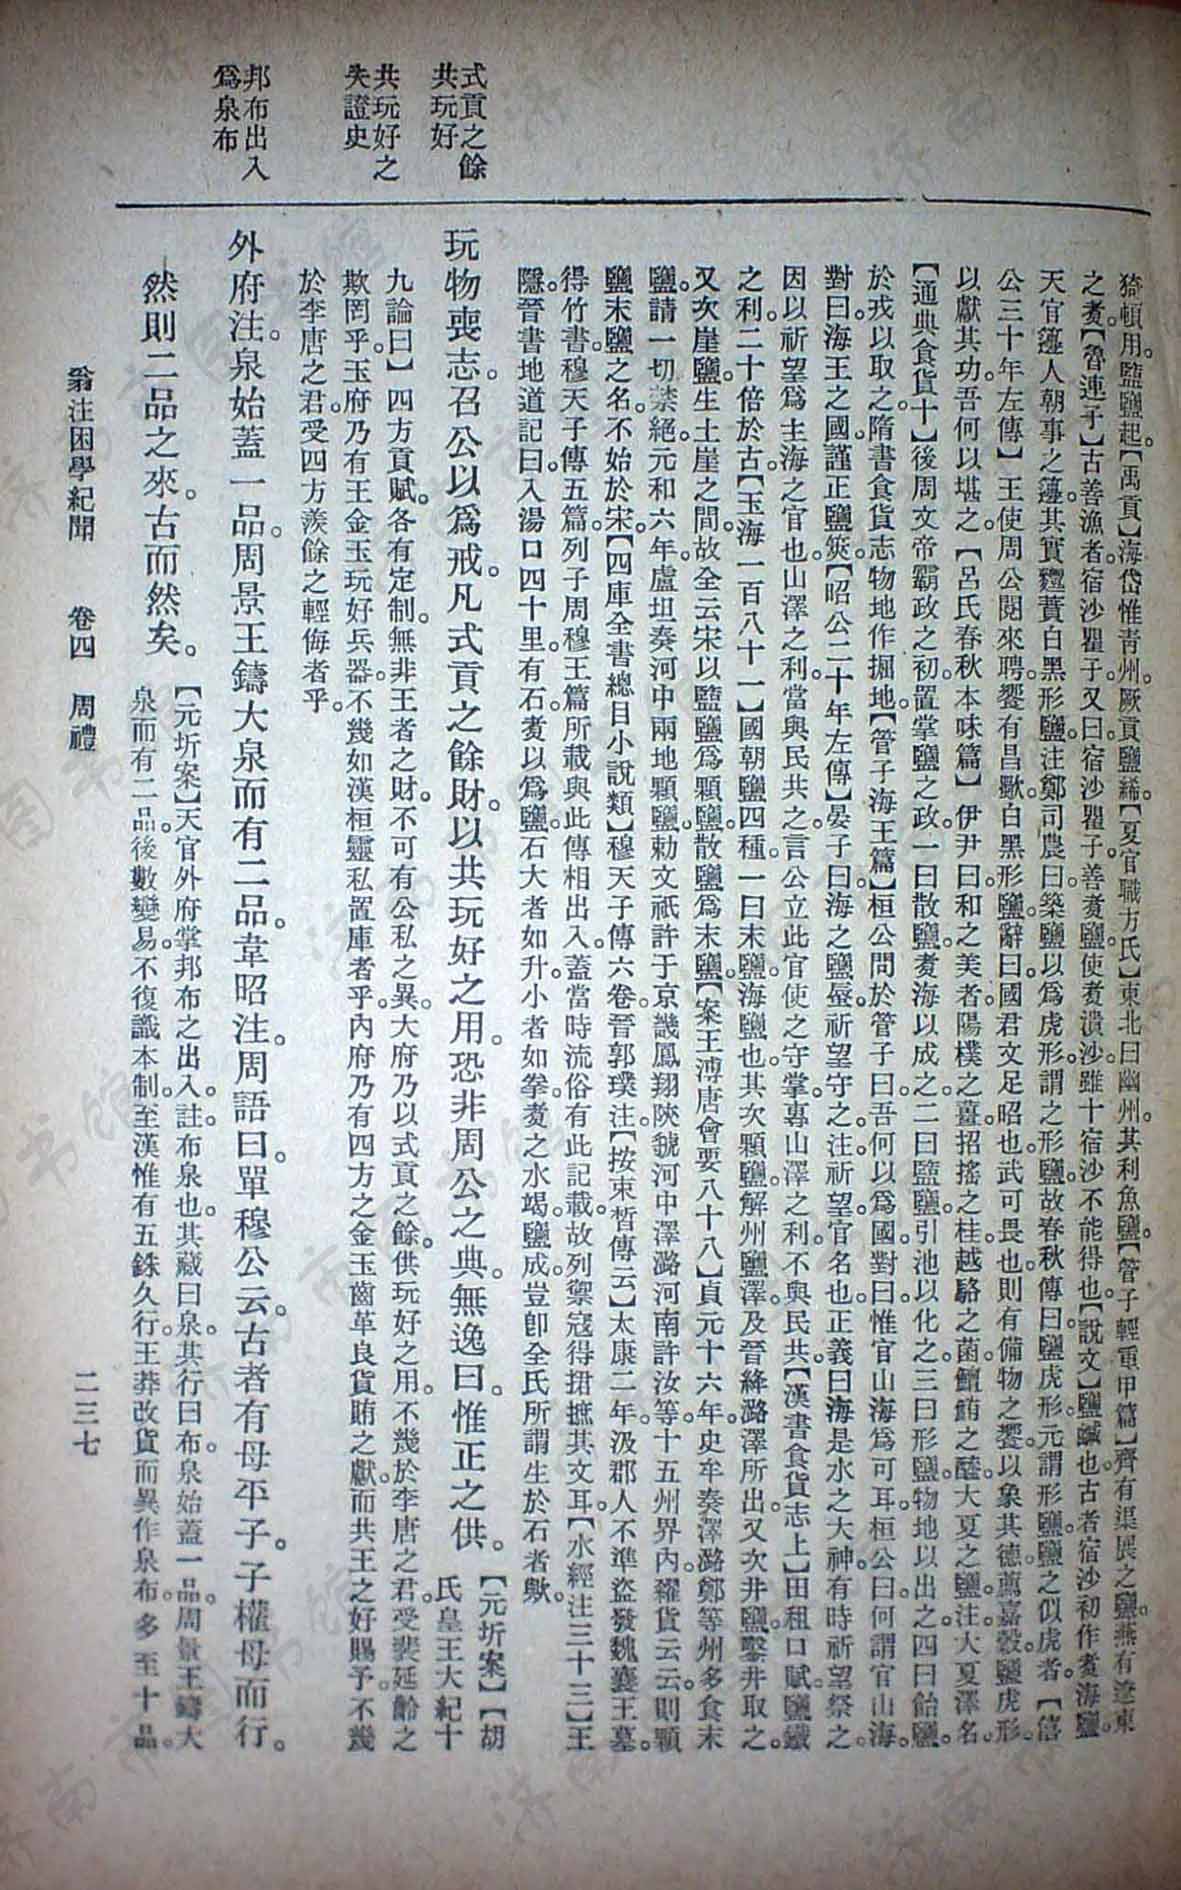 猗頓用鹽鹽起。【禹貢】海岱惟青州。厥貢鹽絺。【夏官職方氏】東北曰幽州。其利魚鹽。【管子輕重甲篇】齊有渠展之鹽。燕有遼東
之煑。【魯連子】古善漁者。宿沙瞿子。又曰宿沙瞿子善煑鹽。使煑漬沙。雖十宿沙不能得也。【說文】鹽鹹也。古者宿沙初作煑海鹽。
天官籩人朝事之籩。其實麷蕡白黑形鹽。注鄭司農曰。築鹽以爲虎形。謂之形鹽。故春秋傳曰鹽虎形。元謂形鹽。鹽之似虎者。【僖
公三十年左傳】王使周公閱來聘。饗有昌歜。白黑形鹽。辭曰。國君文足昭也。武可畏也。則有備物之饗。以象其德。薦嘉穀鹽虎形。
以獻其功。吾何以堪之。【呂氏春秋本味篇】伊尹曰。和之美者。陽樸之薑。招搖之桂。越駱之菌。鱣鮪之醢。大夏之鹽。注大夏澤名。
【通典食貨十】後周文帝霸政之初。置掌鹽之政。一曰散鹽。煑海以成之。二曰監鹽。引池以化之。三曰形鹽。物地以出之。四曰飴鹽。
於戎以取之。隋書食貨志物地作掘地。【管子海王篇】桓公問於管子曰。吾何以爲國。對曰。惟官山海爲可耳。桓公曰。何謂官山海。
對曰。海王之國。謹正鹽筴。【昭公二十年左傳】晏子曰。海之鹽蜃。祈望守之。注祈望。官名也。正義曰。海是水之大神。有時祈望祭之。
因以祈望爲主海之官也。山澤之利。當與民共之。言公立此官使之守掌。專山澤之利。不與民共。【漢書食貨志上】田租口賦。鹽鐵
之利。二十倍於古。【玉海一百八十一】國朝鹽四種。一曰末鹽。海鹽也。其次顆鹽。解州鹽澤。及晉絳潞澤所出。又次井鹽。鑿井取之。
又次崖鹽。生土崖之間。故全云宋以監鹽爲顆鹽。散鹽爲末鹽。【案王溥唐會要八十八】貞元十六年。史牟奏澤潞鄭等州多食末
鹽。請一切禁絕。元和六年。盧坦奏河中兩地顆鹽。勅文祇許于京畿鳳翔陝虢河中澤潞河南許汝等十五州界內糴貨云云。則顆
鹽末鹽之名。不始於宋。【四庫全書總目小說類】穆天子傳六卷。晉郭璞注。【按束晳傳云】太康二年。汲郡人不準盜發魏襄王墓。
得竹書。穆天子傳五篇。列子周穆王篇所載與此傳相出入。蓋當時流俗有此記載。故列禦冠得捃摭其文耳。【水經注三十三】王
隱晉書地道記曰。入湯口四十里。有石。煑以爲鹽。石大者如升。小者如拳。煑之水竭。鹽成。豈卽全氏所謂生於石者歟。
式貢之餘
共玩好
玩物喪志。召公以爲戒。凡式貢之餘財。以共玩好之用。恐非周公之典。無逸曰。惟正之供。【元圻案】【胡
氏皇王大紀十
共玩好之
失證史
九論曰】四方貢賦。各有定制。無非王者之財。不可有公私之異。大府乃以式貢之餘。供玩好之用。不幾於李唐之君。受裴延齡之
欺罔乎。玉府乃有王金玉玩好兵器。不幾如漢桓靈私置庫者乎。內府乃有四方之金玉齒革良貨賄之獻。而共王之好賜予。不幾
於李唐之君。受四方羨餘之輕侮者乎。
邦布出入
爲泉布
外府注。泉始蓋一品。周景王鑄大泉而有二品。韋昭注周語曰。單穆公云。古者有母平子。子權母而行。
然則二品之來。古而然矣。【元圻案】天官外府掌邦布之出入。註布泉也。其藏曰泉。其行曰布。泉始蓋一品。周景王鑄大
泉而有二品。後數變易。不復識本制。至漢惟有五銖久行。王莽改貨而異作泉布。多至十品。
翁注困學紀聞　卷四　周禮　二三七